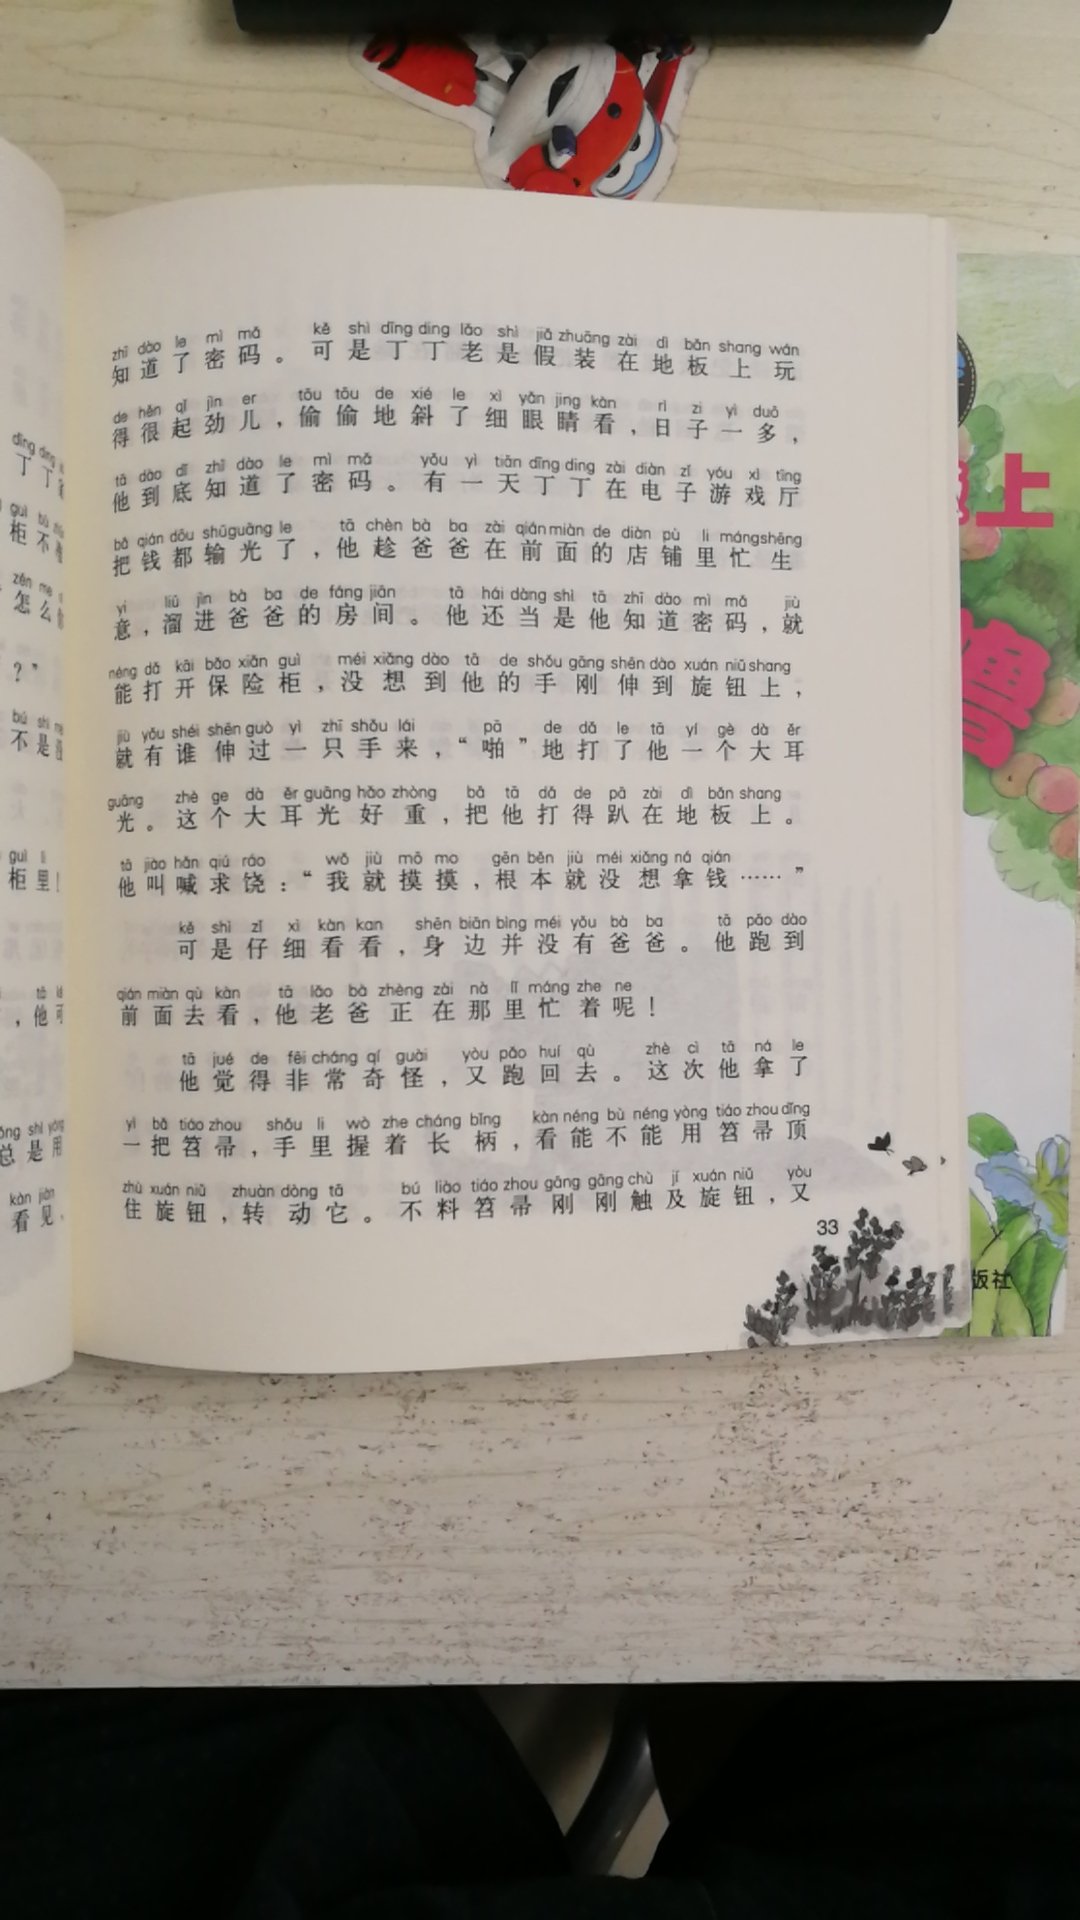 zhī dào le mì mǎ kě shì dīng ding lǎo shì jiǎ zhuāng zài dì bǎn shang wán
知道了密码。可是丁丁老是假装在地板上玩
de hěn qǐ jìn er tōu tōu de xié le xì yǎn jing kàn rì zi yì duō
得很起劲儿，偷偷地斜了细眼睛看，日子一多，
tā dào dǐ zhī dào le mì mǎ yǒu yì tiān dīng ding zài diàn zǐ yóu xì tīng
他到底知道了密码。有一天丁丁在电子游戏厅
bǎ qián dōu shū guāng le tā chèn bà ba zài qián miàn de diàn pù li máng shēng
把钱都输光了，他趁爸爸在前面的店铺里忙生
yi liū jìn bà ba de fáng jiān tā hái dàng shì tā zhī dào mì mǎ jiù
意，溜进爸爸的房间。他还当是他知道密码，就
néng dǎ kāi bǎo xiǎn guì méi xiǎng dào tā de shǒu gāng shēn dào xuán niǔ shang
能打开保险柜，没想到他的手刚伸到旋钮上，
jiù yǒu shéi shēn guò yì zhī shǒu lái pā de dǎ le tā yí gè dà ěr
就有谁伸过一只手来，“啪”地打了他一个大耳
guāng zhè ge dà ěr guāng hǎo zhòng bǎ tā dǎ de pā zài dì bǎn shang
光。这个大耳光好重，把他打得趴在地板上。
tā jiào hǎn qiú ráo wǒ jiù mō mo gēn běn jiù méi xiǎng ná qián
他叫喊求饶：“我就摸摸，根本就没想拿钱……”
kě shì zǐ xì kàn kan shēn biān bìng méi yǒu bà ba tā pǎo dào
可是仔细看看，身边并没有爸爸。他跑到
qián miàn qù kàn tā lǎo bà zhèng zài nà lǐ máng zhe ne
前面去看，他老爸正在那里忙着呢！
tā jué de fēi cháng qí guài yòu pǎo huí qù zhè cì tā ná le
他觉得非常奇怪，又跑回去。这次他拿了
yì bǎ tiáo zhou shǒu li wò zhe cháng bǐng kàn néng bù néng yòng tiáo zhou dǐng
一把笤帚，手里握着长柄，看能不能用笤帚顶
zhù xuán niǔ zhuàn dòng tā bú liào tiáo zhou gāng gāng chù jí xuán niǔ yòu
住旋钮，转动它。不料笤帚刚刚触及旋钮，又
33
dīng ding
丁丁
guì bù
柜不
zěn me
怎么
？”
bú shì
不是
guì lǐ
柜里！
tā
，他可
zǒng shì yòng
总是用
kàn jiàn
看见
上
鲁
版社